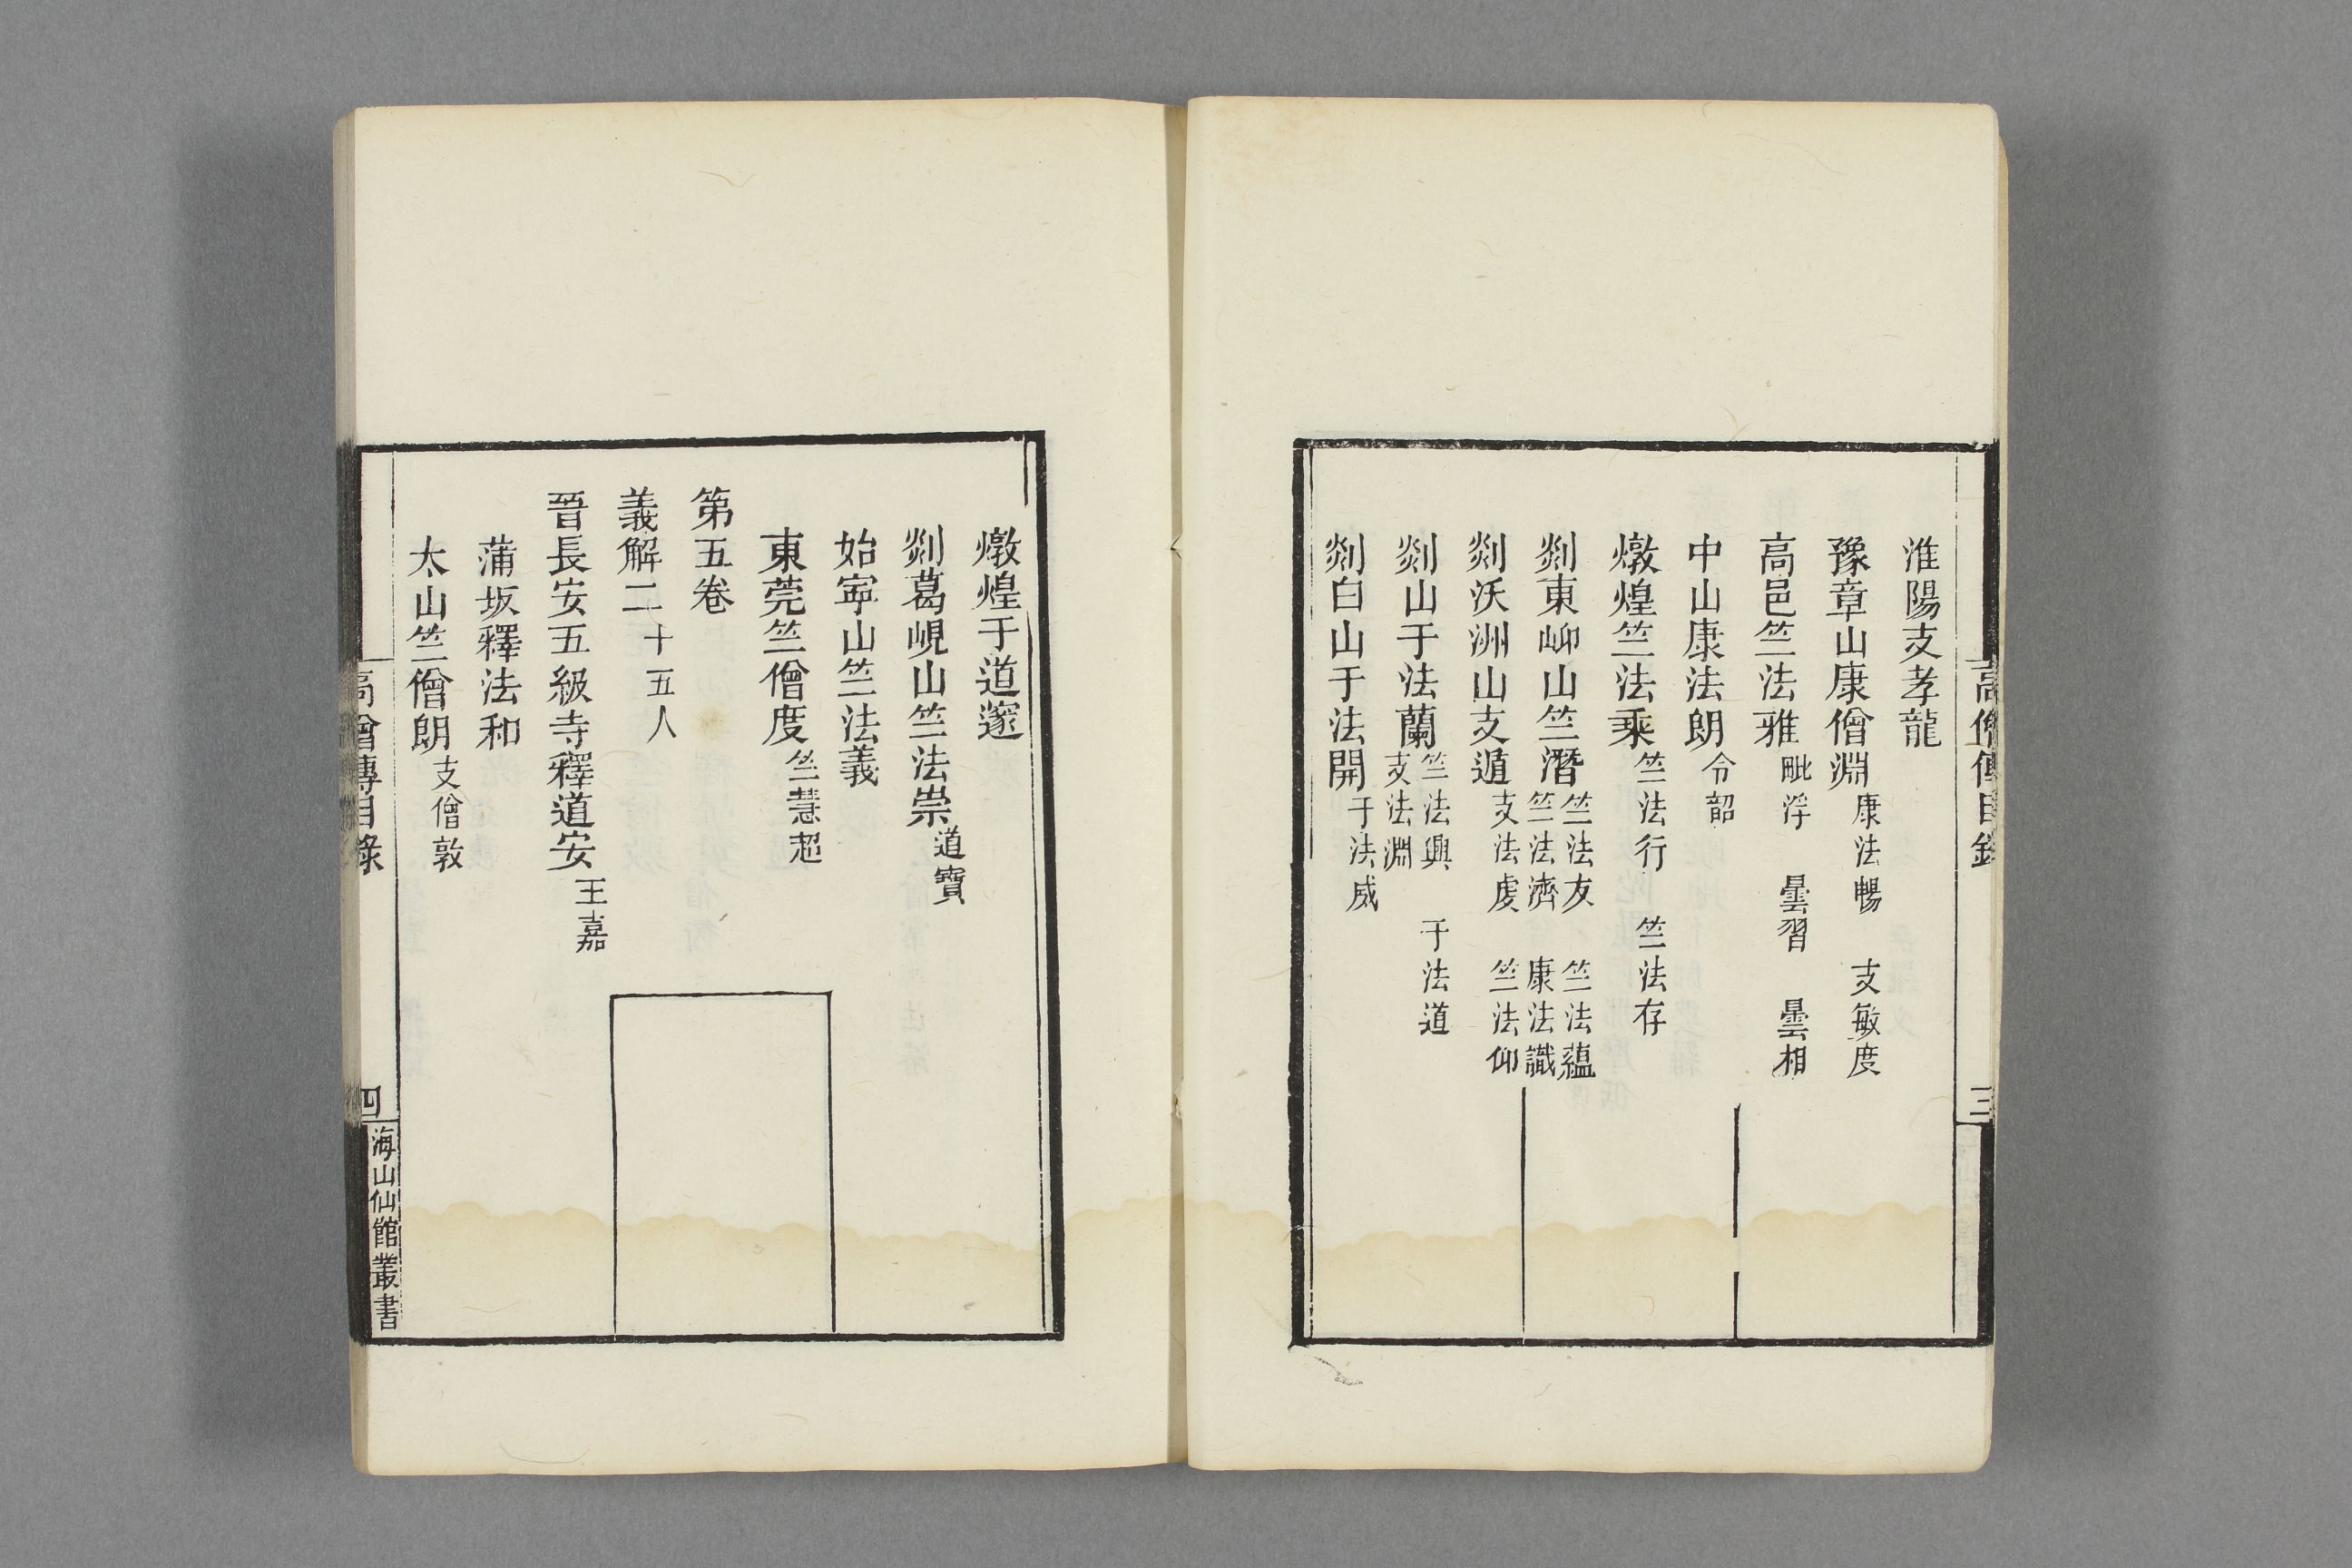 高僧傳目錄
三
淮陽支孝龍
豫章山康僧淵 康法暢 支敏度
高邑竺法雅 毗浮 曇習 曇相
中山康法朗 令韶
燉煌竺法乘 竺法行 竺法存
剡東岬山竺潛 竺法友 竺法蘊
竺法濟 康法識
剡沃洲山支遁 支法虔 竺法仰
剡山于法蘭 竺法興 于法道
支法淵
剡白山于法開 于法威
燉煌于道邃
剡葛峴山竺法崇 道寶
始寧山竺法義
東莞竺僧度 竺慧超
第五卷
義解二 十五人
晉長安五級寺釋道安 王嘉
蒲坂釋法和
太山竺僧朗 支僧敦
高僧傳目錄
四
海山仙館叢書